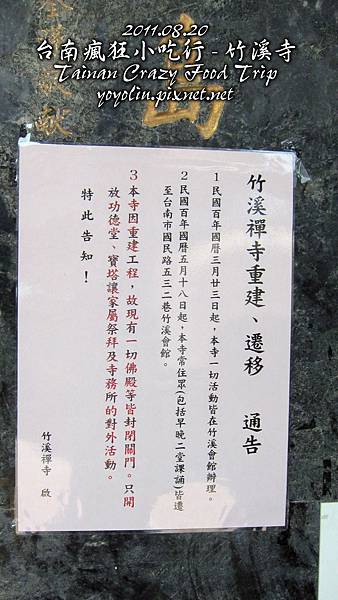 2011.08.20
台南瘋狂小吃行 - 竹溪寺
Tainan Crazy Food Trip
yoyoliu.pixnet.net
竹溪禪寺重建、遷移　通告
1民國百年國曆三月廿三日起，本寺一切活動皆在竹溪會館辦理。
2民國百年國曆五月十八日起，本寺常住眾(包括早晚二堂課誦)皆遷
至台南市國民路五三二巷竹溪會館。
3本寺因重建工程，故現有一切佛殿等皆封閉關門。只開
放功德堂、寶塔讓家屬祭拜及寺務所的對外活動。
特此告知！
竹溪禪寺 啟
獻